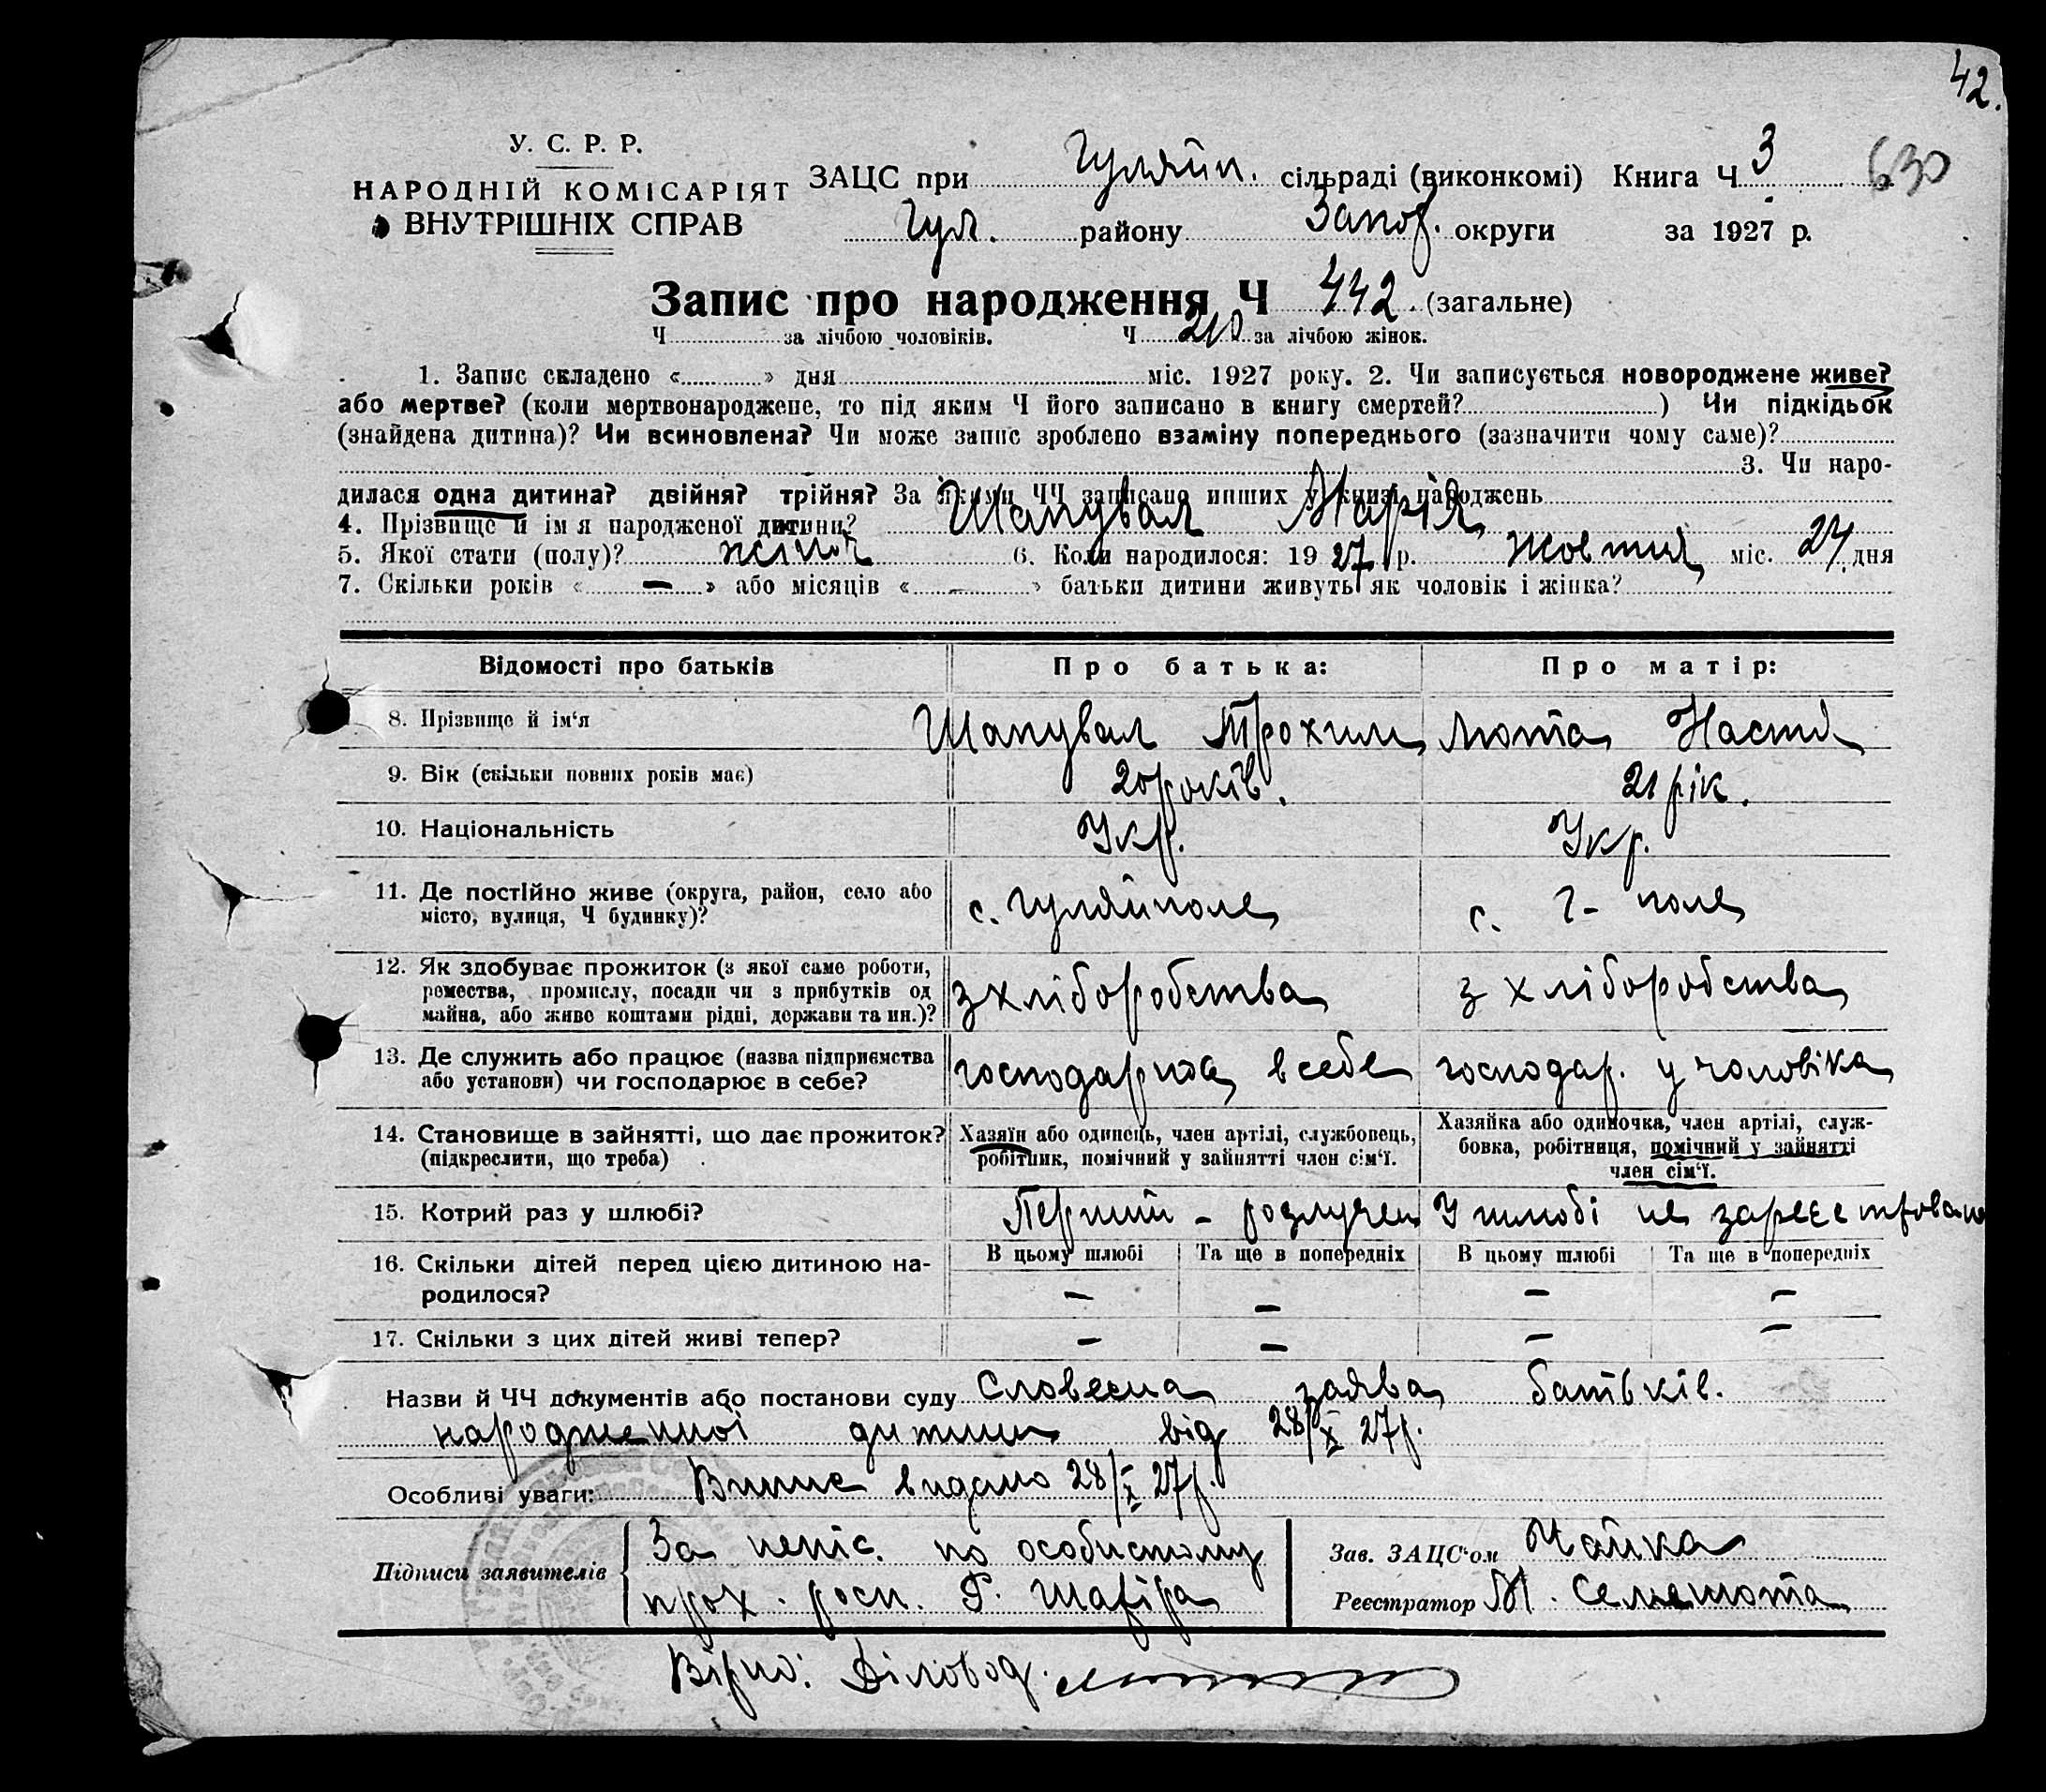 42.
У. С. Р. Р.
НАРОДНІЙ КОМІСАРІЯТ
ВНУТРІШНІХ СПРАВ
ЗАЦС при Гуляйп. сільраді (виконкомі) Книга Ч 3 630
Гул. району Запор. округи за 1927 р.
Запис про народження Ч 442 (загальне)
Ч за лічбою чоловіків. Ч 210 за лічбою жінок.
1. Запис складено « » дня міс. 1927 року. 2. Чи записується новороджене живе?
або мертве? (коли мертвонароджене, то під яким Ч його записано в книгу смертей? ) Чи підкідьок
(знайдена дитина)? Чи всиновлена? Чи може запис зроблено взаміну попереднього (зазначити чому саме)?
3. Чи наро-
дилася одна дитина? двійня? трійня? За якими ЧЧ записано инших у книзі народжень
4. Прізвище й ім я народженої дитини? Шапувал Марія
5. Якої стати (полу)? жіноч 6. Коли народилося: 19 27 р. жовтня міс. 24 дня
7. Скільки років « — » або місяців « - » батьки дитини живуть як чоловік і жінка?
Відомості про батьків Про батька: Про матір:
8. Прізвище й ім'я Шапувал Трохим Люта Настя
9. Вік (скільки повних років має) 20 років. 21 рік.
10. Національність Укр. Укр.
11. Де постійно живе (округа, район, село або
місто, вулиця, Ч будинку)? с. Гуляйполе с. Г- поле
12. Як здобуває прожиток (з якої саме роботи,
ремества, промислу, посади чи з прибутків од
майна, або живе коштами рідні, держави та ин.)? з хліборобства з хліборобства
13. Де служить або працює (назва підприємства
або установи) чи господарює в себе? господарює в себе господар. у чоловіка
14. Становище в зайнятті, що дає прожиток?
(підкреслити, що треба)
Хазяїн або одинець, член артілі, службовець,
робітник, помічний у зайнятті член сім'ї.
Хазяйка або одиночка, член артілі, служ-
бовка, робітниця, помічний у зайнятті
член сім'ї.
15. Котрий раз у шлюбі? Перший - розлучен У шлюбі не зареєстровано
16. Скільки дітей перед цією дитиною на-
родилося?
В цьому шлюбі Та ще в попередніх В цьому шлюбі Та ще в попередніх
— — — —
17. Скільки з цих дітей живі тепер? — — — —
Назви й ЧЧ документів або постанови суду Словесна заява батьків.
народженної дитини від 28/X 27р.
Особливі уваги: Випис видано 28/X 27р.
Підписи заявителів За непис. по особистому
прох. росп. Г. Шафіра
Зав. ЗАЦС'ом Чайка
Реєстратор М. Семенюта
Вірно: Діловод.